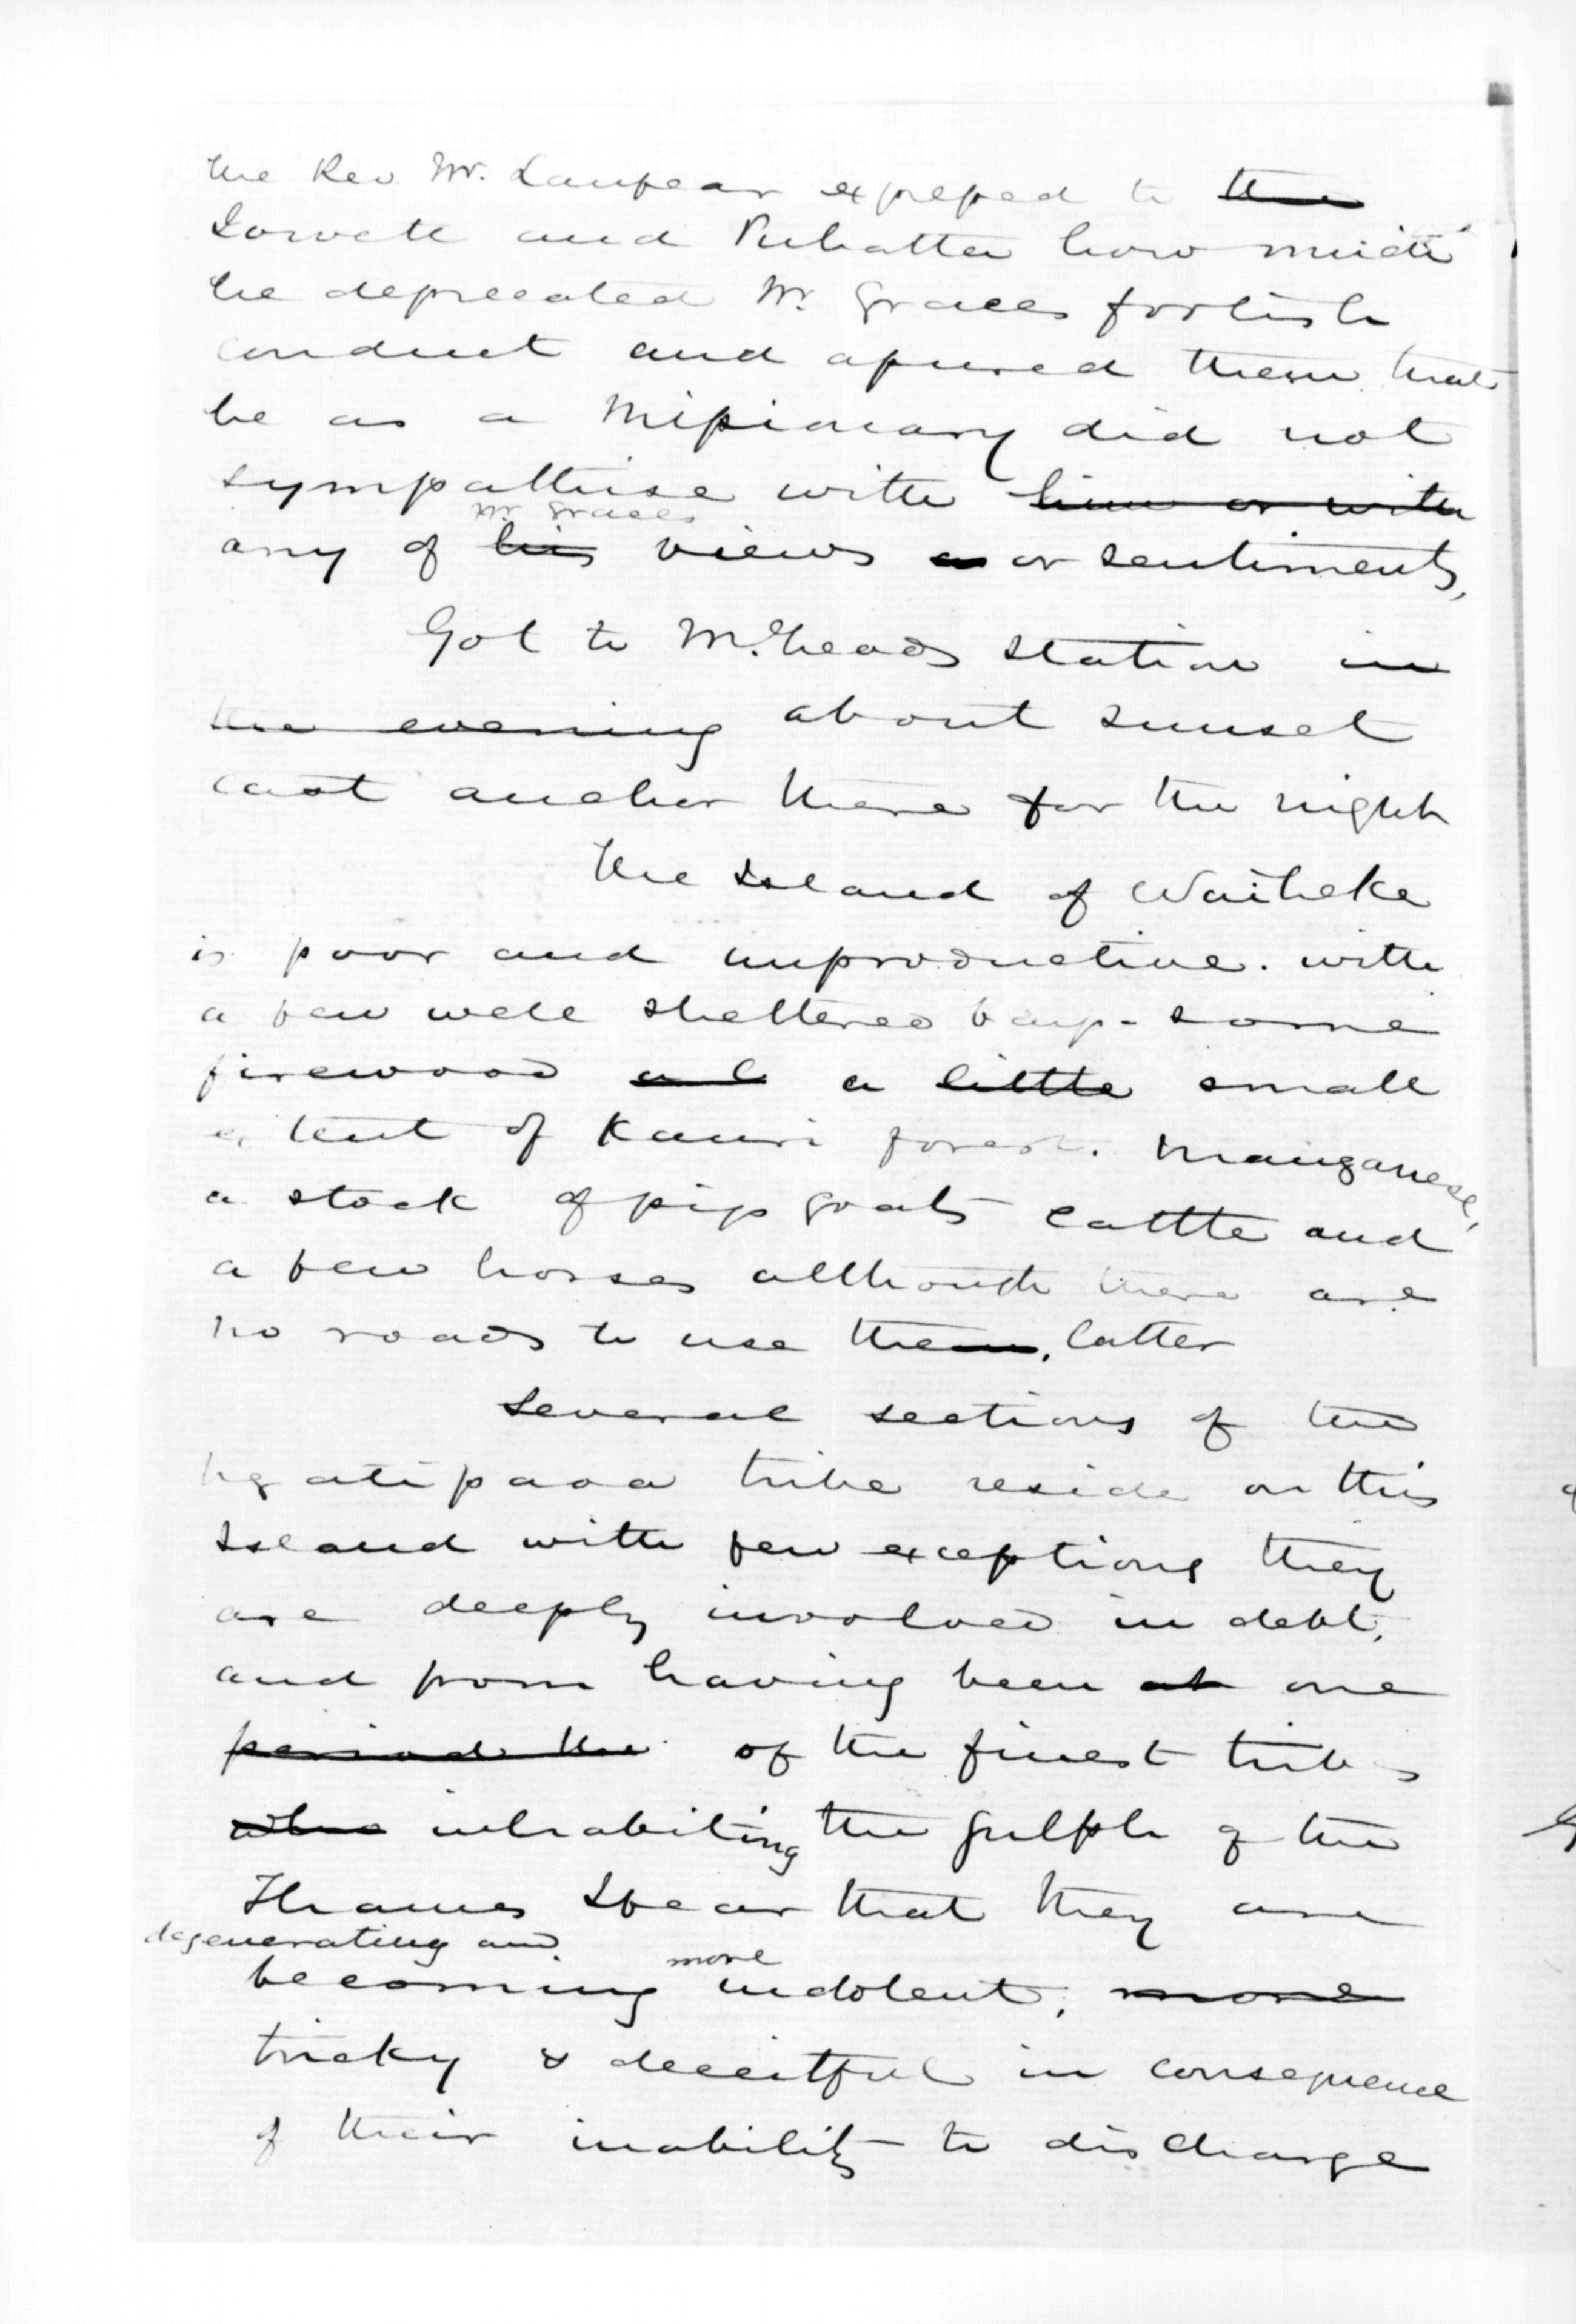 the Rev. Mr. Lanfear expressed to the
and how much
he deprecated Mr Graces foolish
conduct and assured them that
he as a Missionary did not
sympathise with him or with
Mr Graces
any of his views or sentiments,
Got to station in
the evening about sunset
cast anchor there for the night
The Island of Waiheke
is poor and unproductive. with
a few well sheltered bays - some
firewood a little small
extent of Kauri forest. Manganese,
a stock of pigs goats cattle and
a few horses although there are
no roads to use them, latter
Several sections of the
ngatipaoa tribe reside on this
Island with few exceptions they
are deeply involved in debt,
and from having been at one
period the of the finest tribes
who inhabiting the gulph of the
Thames I fear that they are
degenerating and
more
becoming indolent, more
tricky & deceitful in consequence
of their inability to discharge